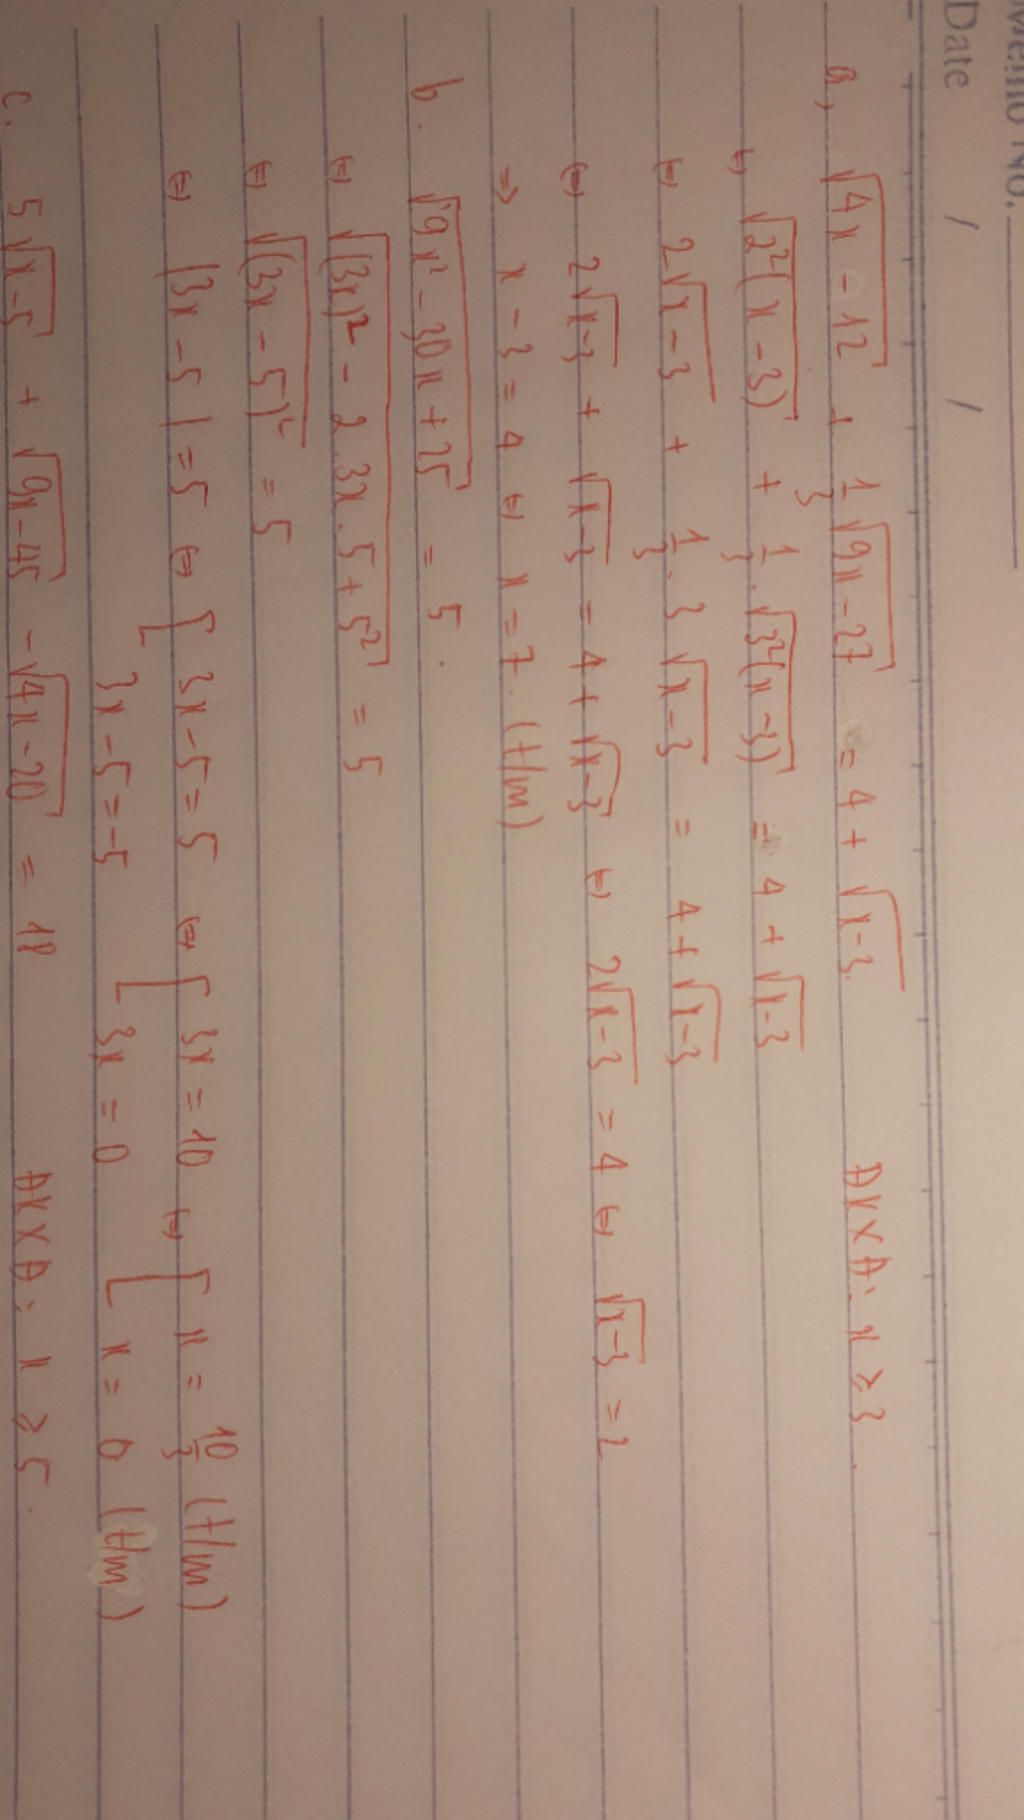 Memo No.
Date / /
a, √(4x - 12) + 1/3 √(9x - 27) = 4 + √(x-3) ĐKXĐ: x ≥ 3.
⇔ √(2²(x - 3)) + 1/3 . √(3²(x-3)) = 4 + √(x-3)
⇔ 2√(x-3) + 1/3 . 3√(x-3) = 4 + √(x-3)
⇔ 2√(x-3) + √(x-3) = 4 + √(x-3) ⇔ 2√(x-3) = 4 ⇔ √(x-3) = 2
⇒ x - 3 = 4 ⇔ x = 7. (t/m)
b. √(9x² - 30x + 25) = 5.
⇔ √((3x)² - 2.3x.5 + 5²) = 5
⇔ √((3x - 5)²) = 5
⇔ |3x - 5| = 5 ⇔ [ 3x - 5 = 5 ⇔ [ 3x = 10 ⇔ [ x = 10/3 (t/m)
3x - 5 = -5 [ 3x = 0 [ x = 0 (t/m)
c. 5√(x-5) + √(9x-45) - √(4x-20) = 18 ĐKXĐ: x ≥ 5.